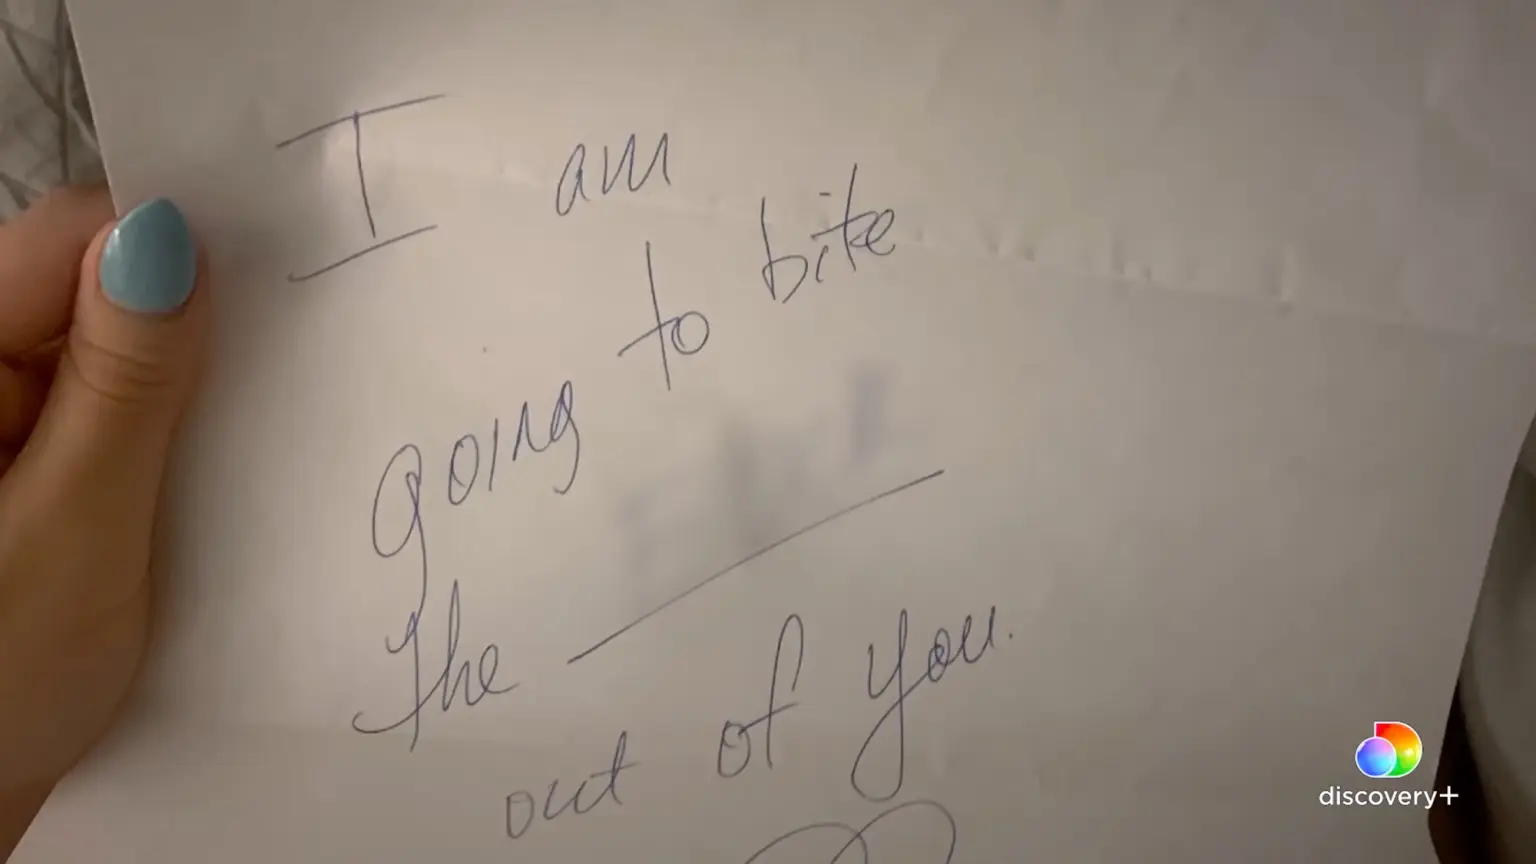 I am
going to bite
the
out of you.
discovery+